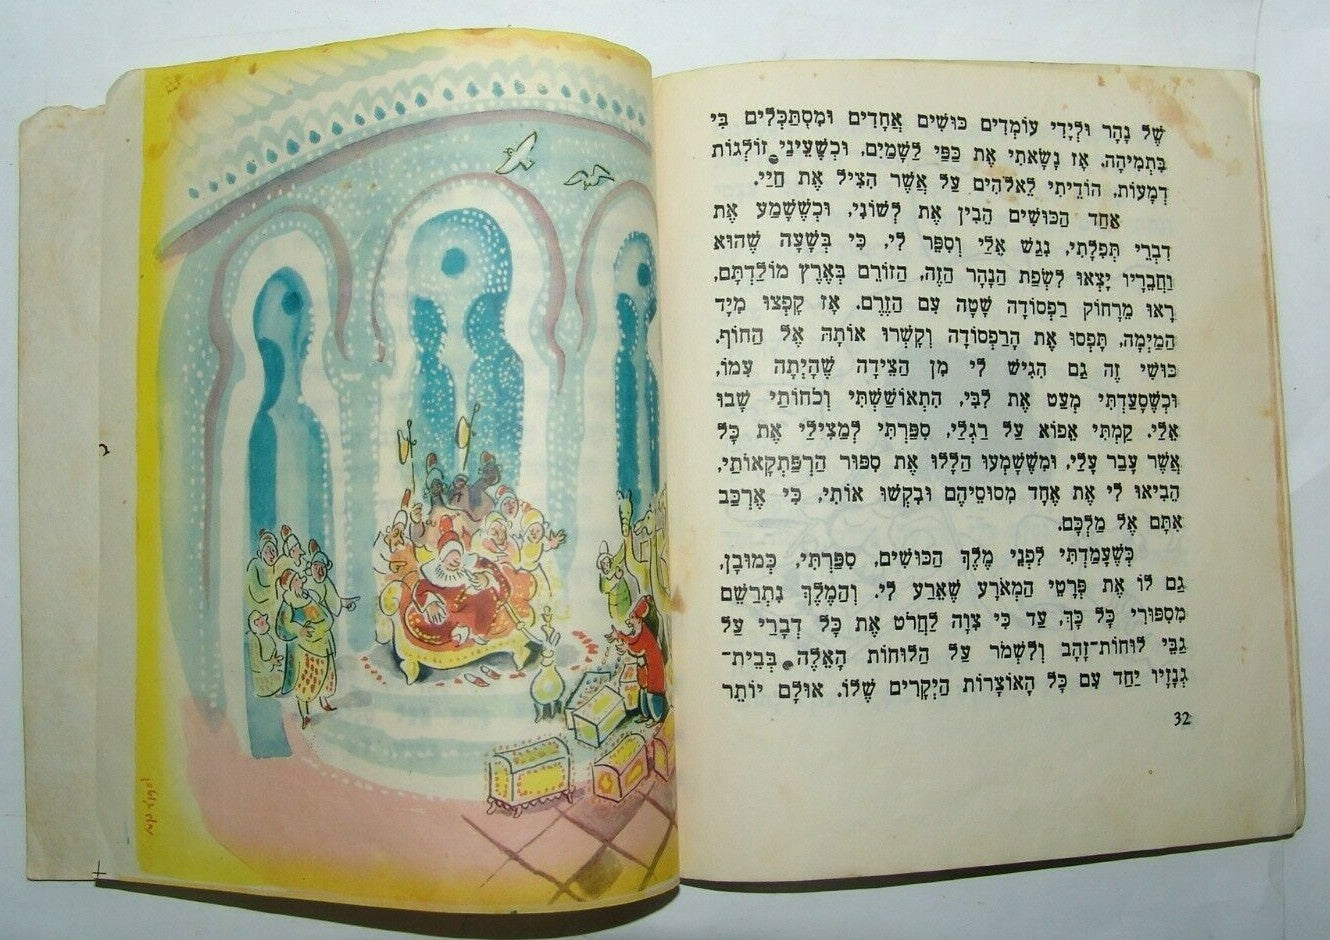 שֶׁל נָהָר וּלְיָדִי עוֹמְדִים כּוּשִׁים אֲחָדִים וּמִסְתַּכְּלִים בִּי
בִּתְמִיהָה. אָז נָשָׂאתִי אֶת כַּפַּי לַשָּׁמַיִם, וּכְשֶׁעֵינַי זוֹלְגוֹת
דְמָעוֹת, הוֹדֵיתִי לֵאלֹהִים עַל אֲשֶׁר הִצִּיל אֶת חַיַּי.
אַחַד הַכּוּשִׁים הֵבִין אֶת לְשׁוֹנִי, וּכְשֶׁשָּׁמַע אֶת
דִבְרֵי תְּפִלָּתִי, נִגַּשׁ אֵלַי וְסִפֵּר לִי, כִּי בְּשָׁעָה שֶׁהוּא
וַחֲבֵרָיו יָצְאוּ לִשְׂפַת הַנָּהָר הַזֶּה, הַזּוֹרֵם בְּאֶרֶץ מוֹלַדְתָּם,
רָאוּ מֵרָחוֹק רַפְסוֹדָה שָׁטָה עִם הַזֶּרֶם. אָז קָפְצוּ מִיָּד
הַמַּיְמָה, תָּפְסוּ אֶת הָרַפְסוֹדָה וְקָשְׁרוּ אוֹתָהּ אֶל הַחוֹף.
כּוּשִׁי זֶה גַּם הִגִּישׁ לִי מִן הַצֵּידָה שֶׁהָיְתָה עִמּוֹ,
וּכְשֶׁסָּעַדְתִּי מְעַט אֶת לִבִּי, הִתְאוֹשַׁשְׁתִּי וְכֹחוֹתַי שָׁבוּ
אֵלַי. קַמְתִּי אֵפוֹא עַל רַגְלַי, סִפַּרְתִּי לְמַצִּילַי אֶת כָּל
אֲשֶׁר עָבַר עָלַי, וּמִשֶּׁשָּׁמְעוּ הַלָּלוּ אֶת סִפּוּר הַרְפַּתְקָאוֹתַי,
הֵבִיאוּ לִי אֶת אֶחָד מִסּוּסֵיהֶם וּבִקְשׁוּ אוֹתִי, כִּי אֶרְכַּב
אִתָּם אֶל מַלְכָּם.
כְּשֶׁעָמַדְתִּי לִפְנֵי מֶלֶךְ הַכּוּשִׁים, סִפַּרְתִּי, כַּמּוּבָן,
גַּם לוֹ אֶת פְּרָטֵי הַמְּאֹרָע שֶׁאֵרַע לִי. וְהַמֶּלֶךְ נִתְרַשֵּׁם
מִסִּפּוּרִי כָּל כָּךְ, עַד כִּי צִוָּה לַחֲרֹט אֶת כָּל דְּבָרַי עַל
גַּבֵּי לוּחוֹת־זָהָב וְלִשְׁמֹר עַל הַלּוּחוֹת הָאֵלֶּה בְּבֵית־
גְנָזָיו יַחַד עִם כָּל הָאוֹצָרוֹת הַיְקָרִים שֶׁלּוֹ. אוּלָם יוֹתֵר
32